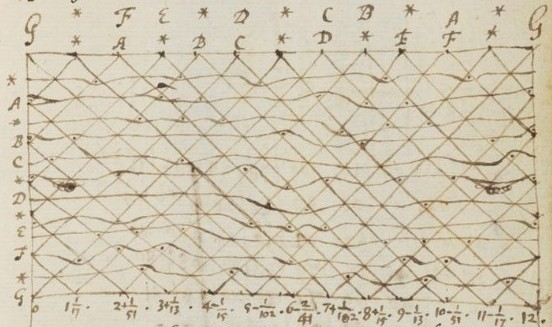 * F E * D * C B * A *
G * A * B C * D * E F * G
*
A
*
B
C
*
D
*
E
F
*
G
0 1 1/17 . 2+1/51 . 3+1/13 . 4-1/15 . 5-1/102 . 6-2/41 . 7+1/102 . 8+1/15 . 9-1/13 . 10-1/51 . 11-1/17 . 12 .